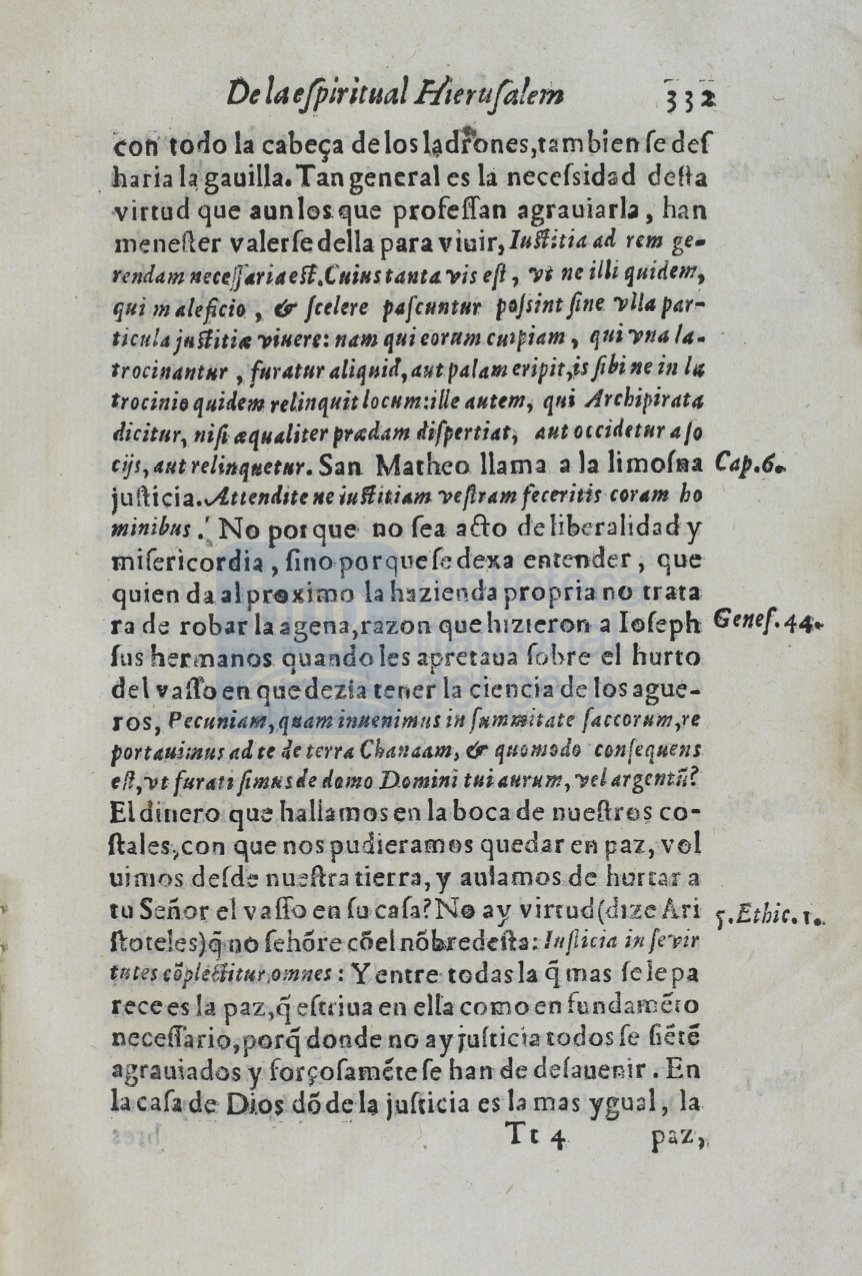 De la eſpiritual Hieruſalem 332
con todo la cabeça de los ladrones, tambien ſe deſ
haria la gauilla. Tan general es la neceſsidad deſta
virtud que aun los que profeſſan agrauiarla, han
meneſter valerſe della para viuir, Iuſtitia ad rem ge-
rendam neceſſaria eſt. Cuius tanta vis eſt, vt ne illi quidem,
qui maleficio, & ſcelere paſcuntur poſsint ſine vlla par-
ticula juſtitiæ viuere: nam qui eorum cuipiam, qui vna la-
trocinantur, furatur aliquid, aut palam eripit, is ſibi ne in la
trocinio quidem relinquit locum: ille autem, qui Archipirata
dicitur, niſi æqualiter prædam diſpertiat, aut occidetur a ſo
cijs, aut relinquetur. San Matheo llama a la limoſna Cap. 6.
juſticia. Attendite ne iuſtitiam veſtram feceritis coram ho
minibus. No porque no ſea acto de liberalidad y
miſericordia, ſino porque ſe dexa entender, que
quien da al proximo la hazienda propria no trata
ra de robar la agena, razon que hizieron a Ioſeph Geneſ. 44.
ſus hermanos quando les apretaua ſobre el hurto
del vaſſo en que dezia tener la ciencia de los ague-
ros, Pecuniam, quam inuenimus in ſummitate ſaccorum, re
portauimus ad te de terra Chanaam, & quomodo conſequens
eſt, vt furati ſimus de domo Domini tui aurum, vel argentũ?
El dinero que hallamos en la boca de nueſtros co-
ſtales, con que nos pudieramos quedar en paz, vol
uimos deſde nueſtra tierra, y auiamos de hurtar a
tu Señor el vaſſo en ſu caſa? No ay virtud (dize Ari 5. Ethic. 1.
ſtoteles) q̃ no ſe hõre cõ el nõbre deſta: Iuſticia in ſe vir
tutes cõplectitur omnes: Y entre todas la q̃ mas ſe le pa
rece es la paz, q̃ eſtriua en ella como en fundamẽto
neceſſario, porq̃ donde no ay juſticia todos ſe ſiẽtẽ
agrauiados y forçoſamẽte ſe han de deſauenir. En
la caſa de Dios dõde la juſticia es la mas ygual, la
Tt 4 paz,